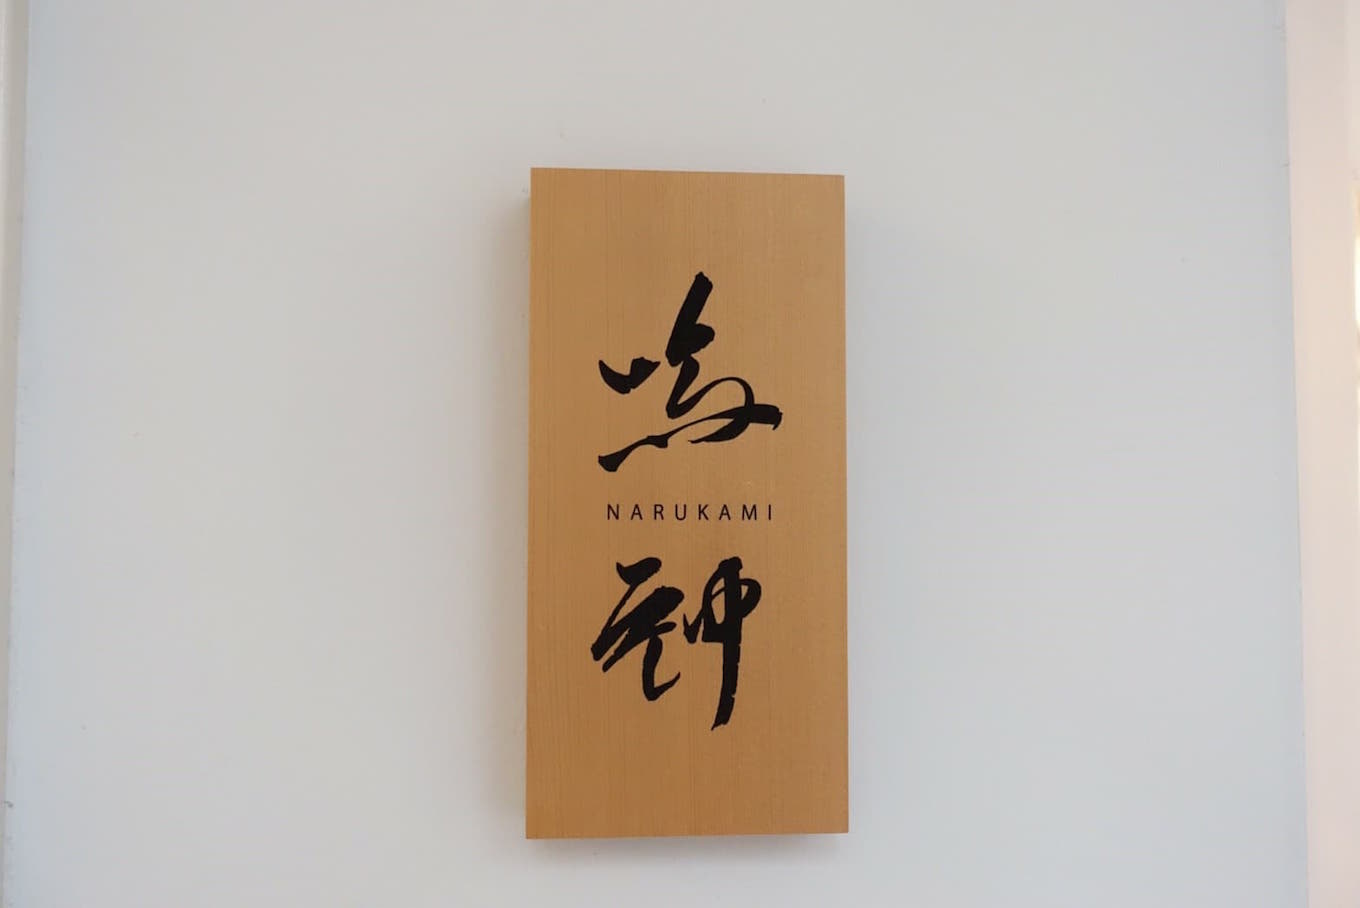 鳴
NARUKAMI
神